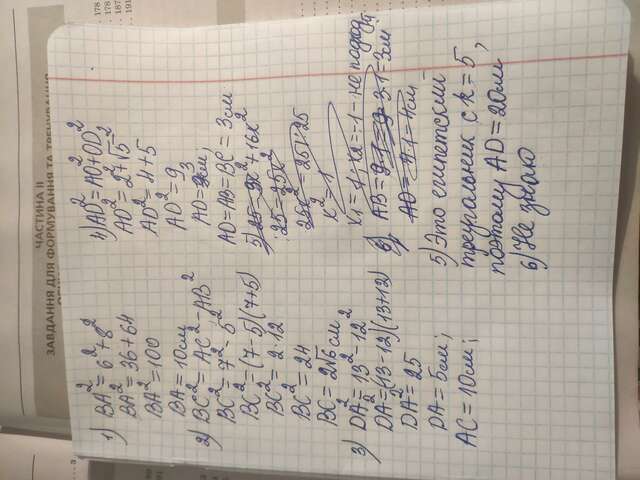 ЧАСТИНА II
ЗАВДАННЯ ДЛЯ ФОРМУВАННЯ ТА ТРЕНУВАННЯ
1) BA² = 6² + 8²
BA² = 36 + 64
BA² = 100
BA = 10см
2) BC² = AC² - AB²
BC² = 7² - 5²
BC² = (7-5)(7+5)
BC² = 2·12
BC² = 24
BC = 2√6 см
3) DA² = 13² - 12²
DA² = (13-12)(13+12)
DA² = 25
DA = 5см;
AC = 10см;
4) AD² = AO² + OD²
AD² = 2² + √5²
AD² = 4 + 5
AD² = 9
AD = 3см
AD = AB = BC = 3см
5) 25 = 9x² + 16x²
25 = 25x²
25x² = 25
x² = 1
x₁ = 1; x₂ = -1 - не подход
AB = 3·1 = 3см
AD = 4·1 = 4см
5) Это египетский
треугольник с k = 5,
поэтому AD = 20см
6) Не знаю